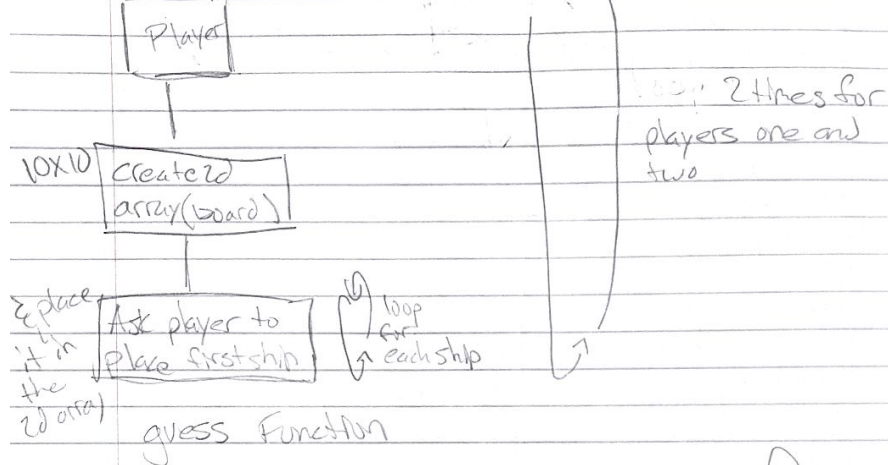 Player
loop 2 times for
players one and
two
10X10
Create 2d
array(board)
& place
it in
the
2d array
Ask player to
place first ship
loop
for
each ship
guess Function